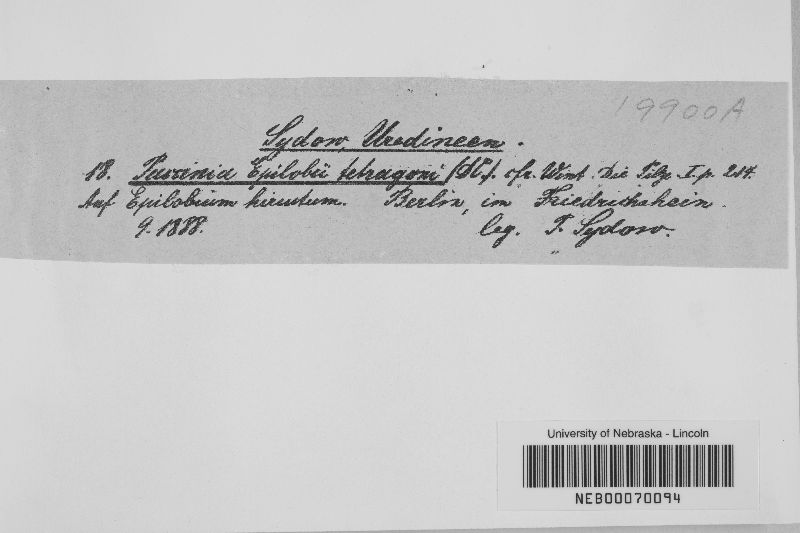 19900A
Sydow, Uredineen.
18. Puccinia Epilobii tetragoni (DC.). cfr. Wint. Die Pilze I. p. 214.
Auf Epilobium hirsutum. Berlin, im Friedrichshein.
9. 1888. leg. P. Sydow.
University of Nebraska - Lincoln
NEB00070094